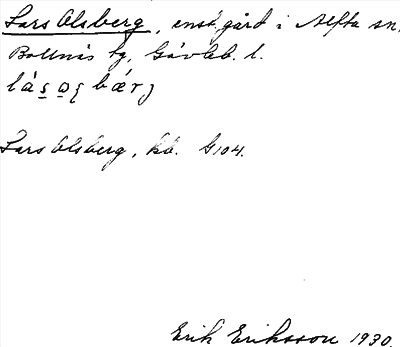 Lars Olsberg, enst. gård i Alfta sn.
Bollnäs tg, Gävleb. l.
Lars Olsberg, kb. G104.
Erik Eriksson 1930.